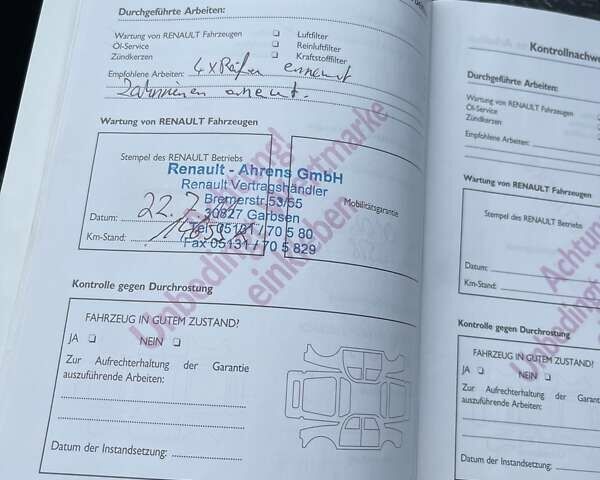 Durchgeführte Arbeiten:
Wartung von RENAULT Fahrzeugen
Öl-Service
Zündkerzen
Luftfilter
Reinluftfilter
Kraftstofffilter
Empfohlene Arbeiten: 4 x Reifen erneuert
Zahnriemen erneut.
Wartung von RENAULT Fahrzeugen
Stempel des RENAULT Betriebs
Renault - Ahrens GmbH
Renault Vertragshändler
Bremerstr. 53/55
30827 Garbsen
Tel. 05131 / 70 5 80
Fax 05131 / 70 5 829
Datum: 22.7.
Km-Stand:
Mobilitätsgarantie
Unbedingt Wertmarke
einkleben
Kontrolle gegen Durchrostung
FAHRZEUG IN GUTEM ZUSTAND?
JA NEIN
Zur Aufrechterhaltung der Garantie
auszuführende Arbeiten:
Datum der Instandsetzung:
Kontrollnachwe
Durchgeführte Arbeiten:
Wartung von RENAULT Fahrzeugen
Öl-Service
Zündkerzen
Empfohlene Arbeiten:
Wartung von RENAULT Fahrzeugen
Stempel des RENAULT Betriebs
Datum:
Km-Stand:
Achtung
Unbedingt
Kontrolle gegen Durchrostung
FAHRZEUG IN GUTEM ZUSTAND?
JA NEIN
Zur Aufrechterhaltung der Garant
auszuführende Arbeiten:
Datum der Instandsetzung: